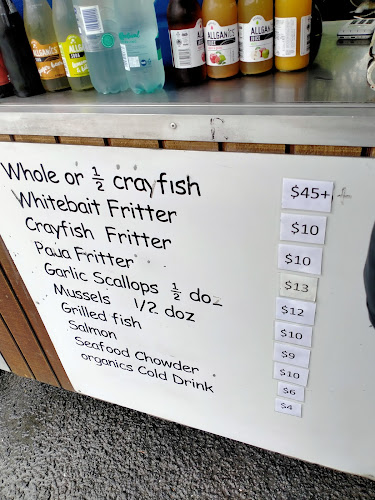 ALLGANICS
ALLGANICS
ALLGANICS
Whole or ½ crayfish $45+ +
Whitebait Fritter $10
Crayfish Fritter $10
Paua Fritter $13
Garlic Scallops ½ doz $12
Mussels 1/2 doz $10
Grilled fish $9
Salmon $10
Seafood Chowder $6
organics Cold Drink $4